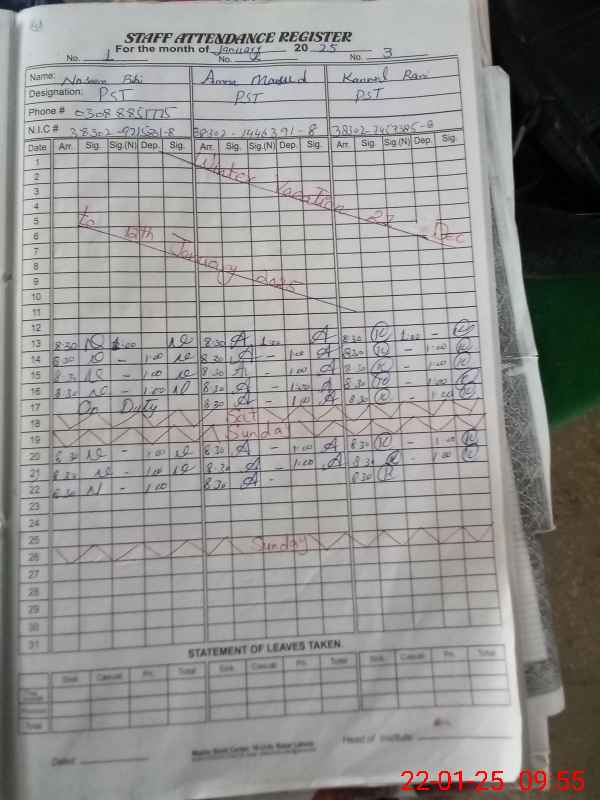 STAFF ATTENDANCE REGISTER
For the month of January 2025
No. 1 No. 2 No. 3
Name: Naseem Bibi Amna Kanwal Rani
Designation: PST PST PST
Phone # 03088851775
N.I.C # 38302-1446391-8
Date Arr. Sig. Sig.(N) Dep. Sig. Arr. Sig. Sig.(N) Dep. Sig. Arr. Sig. Sig.(N) Dep. Sig.
1
2 Winter Vacation 22 Dec
3
4
5
6 to 12th January 2025
7
8
9
10
11
12
13 8:30 1:00 8:30 A 1:00 A 8:30 K 1:00 - K
14 8:30 - 1:00 8:30 A - 1:00 A 8:30 K - 1:00 K
15 8:30 - 1:00 8:30 A - 1:00 A 8:30 K - 1:00 K
16 8:30 - 1:00 8:30 A - 1:00 A 8:30 K - 1:00 K
17 On Duty 8:30 A - 1:00 A 8:30 K - 1:00 K
18 Sat
19 Sunday
20 8:30 - 1:00 8:30 A - 1:00 A 8:30 K - 1:00 K
21 8:30 - 1:00 8:30 A - 1:00 A 8:30 K - 1:00 K
22 8:30 N - 1:00 8:30 A - 8:30 K
23
24
25
26 Sunday
27
28
29
30
31
STATEMENT OF LEAVES TAKEN
Sick Casual Pri. Total Sick Casual Pri. Total Sick Casual Pri. Total
Total
Dated: Head of Institute:
22-01-25 09:55